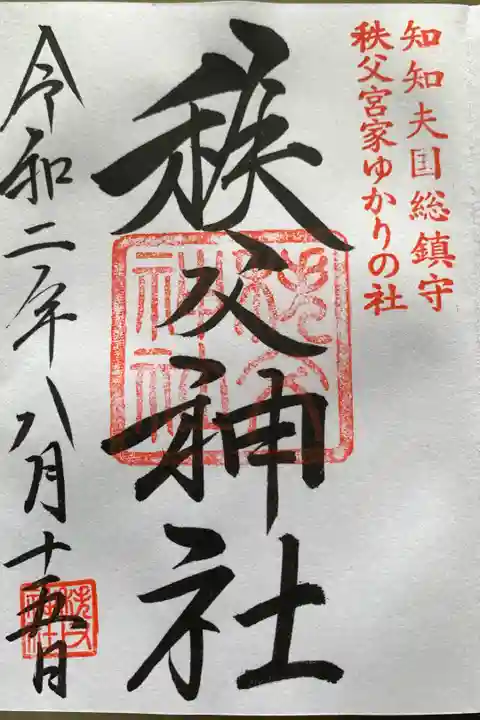 知知夫国総鎮守
秩父宮家ゆかりの社
秩父神社
令和二年八月十五日
秩父神社